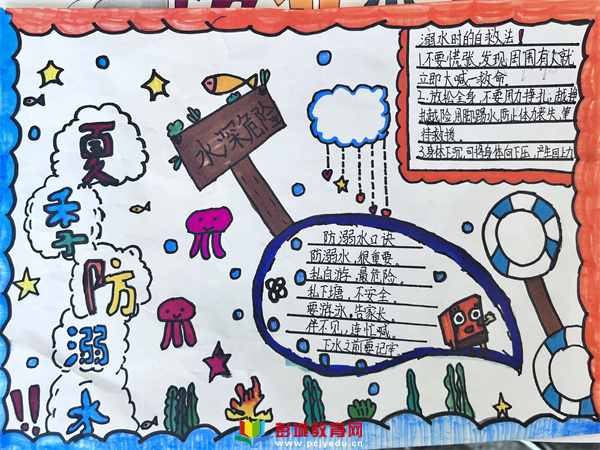 夏
季
防
溺
水
!!
水深危险
溺水时的自救法!
1.不要慌张,发现周围有人就
立即大喊一救命
2.放松全身,不要用力挣扎,越挣
扎越险用脚踢水,防止体力丧失,等
待救援
3.身体下沉,可将身体向下压,产生回上力
防溺水口诀
防溺水,很重要。
私自游,最危险。
私下塘,不安全。
要游泳,告家长。
伴不见,连忙喊。
下水之前要记牢。
彭城教育网
www.pcjyedu.cn